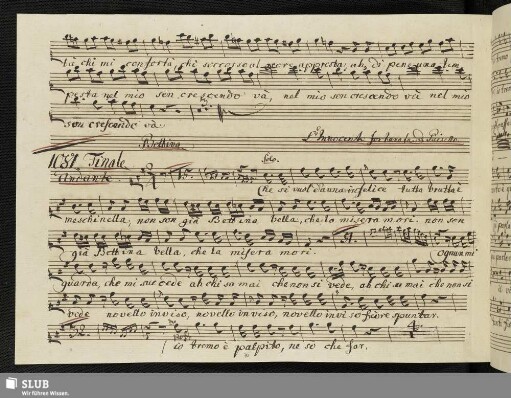 tà chi mi conforta chi soccorso al core appresta ah di pene una tem
pesta nel mio sen crescendo và, nel mio sen crescendo và nel mio
sen crescendo và
Bettina L'Innocente fortunata di Paisiello
Finale
Andante Solo.
Che si vuol da una infelice tutta
meschinella, non son già Bettina bella, che la misera morì. non son
già Bettina bella, che la misera morì. Ognun mi
guarda, che mi succede ah chi sa mai che non si vede, ah chi sa mai che non si
vede novello inviso, novello inviso, novello inviso fiore spuntar.
io tremo è palpito, ne so che far.
SLUB
Wir führen Wissen.